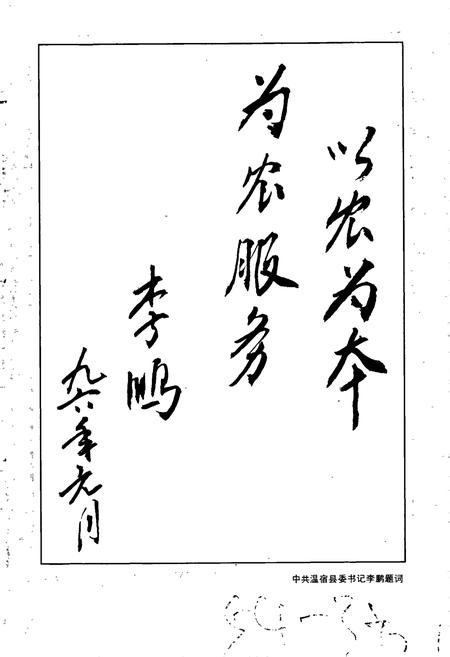 以农为本
为农服务
李鹏
九六年元月
中共温宿县委书记李鹏题词